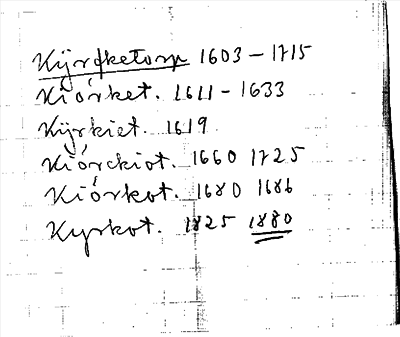 Kyrcketorp 1603 – 1715
Kiórket. 1611 – 1633
Kyrkiet. 1619
Kiórckiot. 1660 1725
Kiórkot. 1680 1686
Kyrkot. 1825 1880